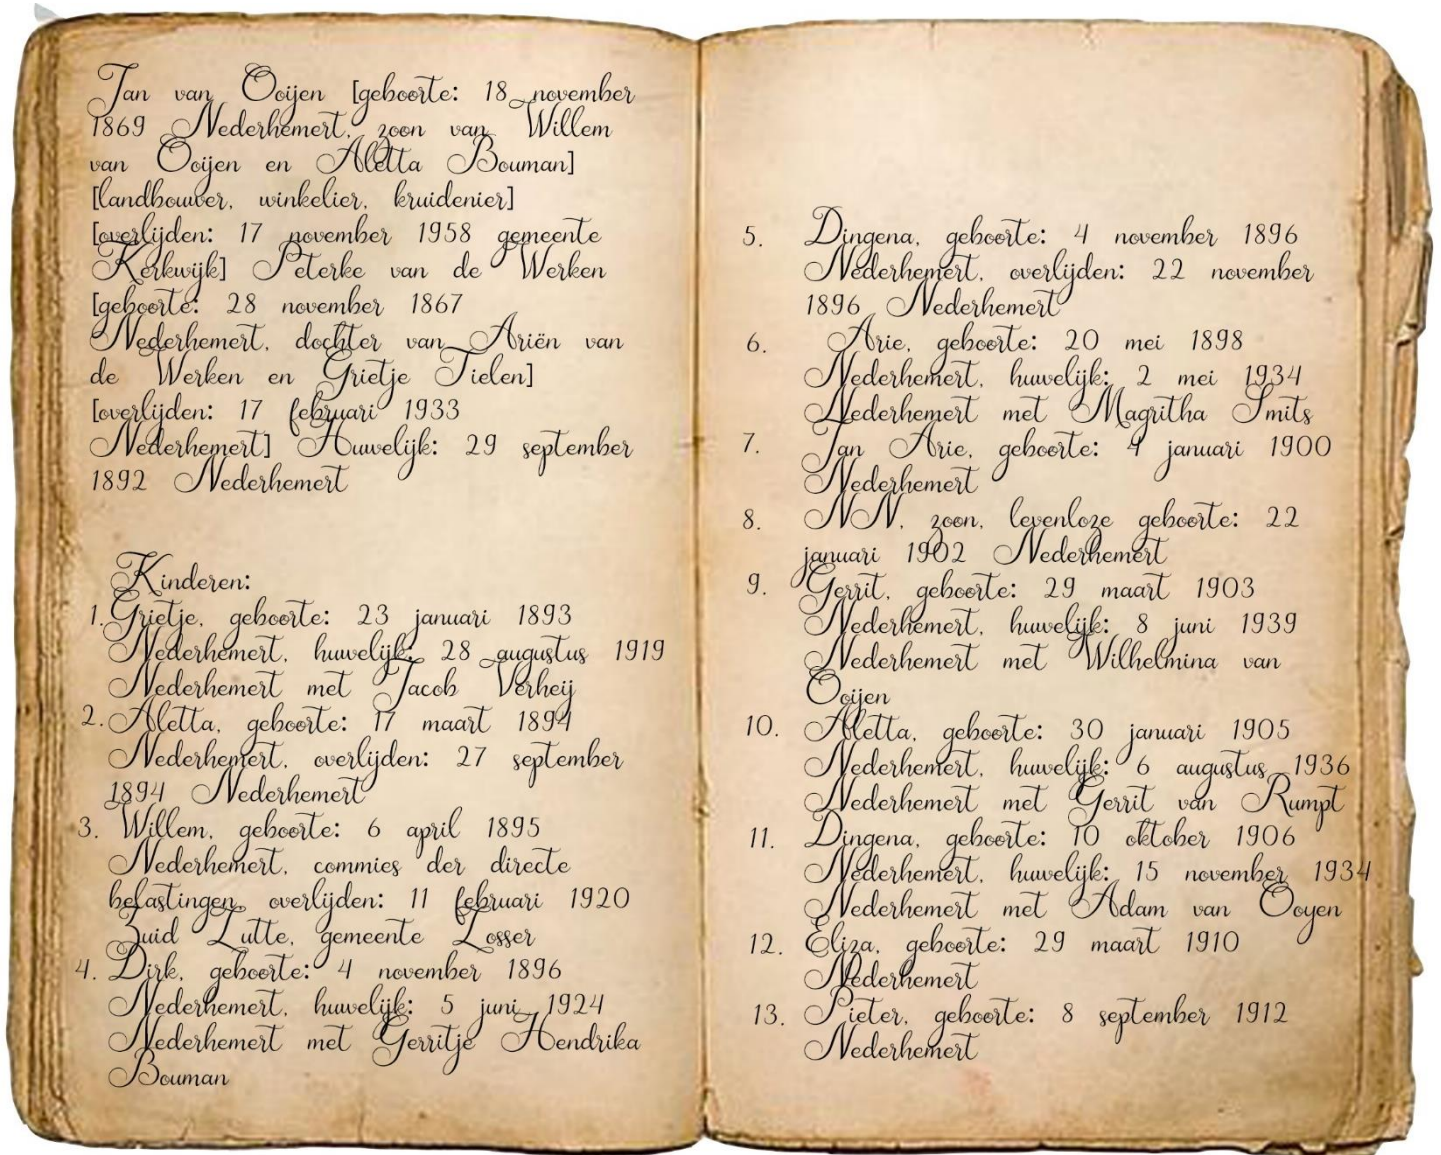 Jan van Ooijen [geboorte: 18 november
1869 Nederhemert, zoon van Willem
van Ooijen en Aletta Bouman]
[landbouwer, winkelier, kruidenier]
[overlijden: 17 november 1958 gemeente
Kerkwijk] Peterke van de Werken
[geboorte: 28 november 1867
Nederhemert, dochter van Ariën van
de Werken en Grietje Tielen]
[overlijden: 17 februari 1933
Nederhemert] Huwelijk: 29 september
1892 Nederhemert
Kinderen:
1. Grietje, geboorte: 23 januari 1893
Nederhemert, huwelijk: 28 augustus 1919
Nederhemert met Jacob Verheij
2. Aletta, geboorte: 17 maart 1894
Nederhemert, overlijden: 27 september
1894 Nederhemert
3. Willem, geboorte: 6 april 1895
Nederhemert, commies der directe
belastingen, overlijden: 11 februari 1920
Zuid Lutte, gemeente Losser
4. Dirk, geboorte: 4 november 1896
Nederhemert, huwelijk: 5 juni 1924
Nederhemert met Gerritje Hendrika
Bouman
5. Dingena, geboorte: 4 november 1896
Nederhemert, overlijden: 22 november
1896 Nederhemert
6. Arie, geboorte: 20 mei 1898
Nederhemert, huwelijk: 2 mei 1934
Nederhemert met Magritha Smits
7. Jan Arie, geboorte: 4 januari 1900
Nederhemert
8. NN, zoon, levenloze geboorte: 22
januari 1902 Nederhemert
9. Gerrit, geboorte: 29 maart 1903
Nederhemert, huwelijk: 8 juni 1939
Nederhemert met Wilhelmina van
Ooijen
10. Aletta, geboorte: 30 januari 1905
Nederhemert, huwelijk: 6 augustus 1936
Nederhemert met Gerrit van Rumpt
11. Dingena, geboorte: 10 oktober 1906
Nederhemert, huwelijk: 15 november 1934
Nederhemert met Adam van Ooyen
12. Eliza, geboorte: 29 maart 1910
Nederhemert
13. Pieter, geboorte: 8 september 1912
Nederhemert